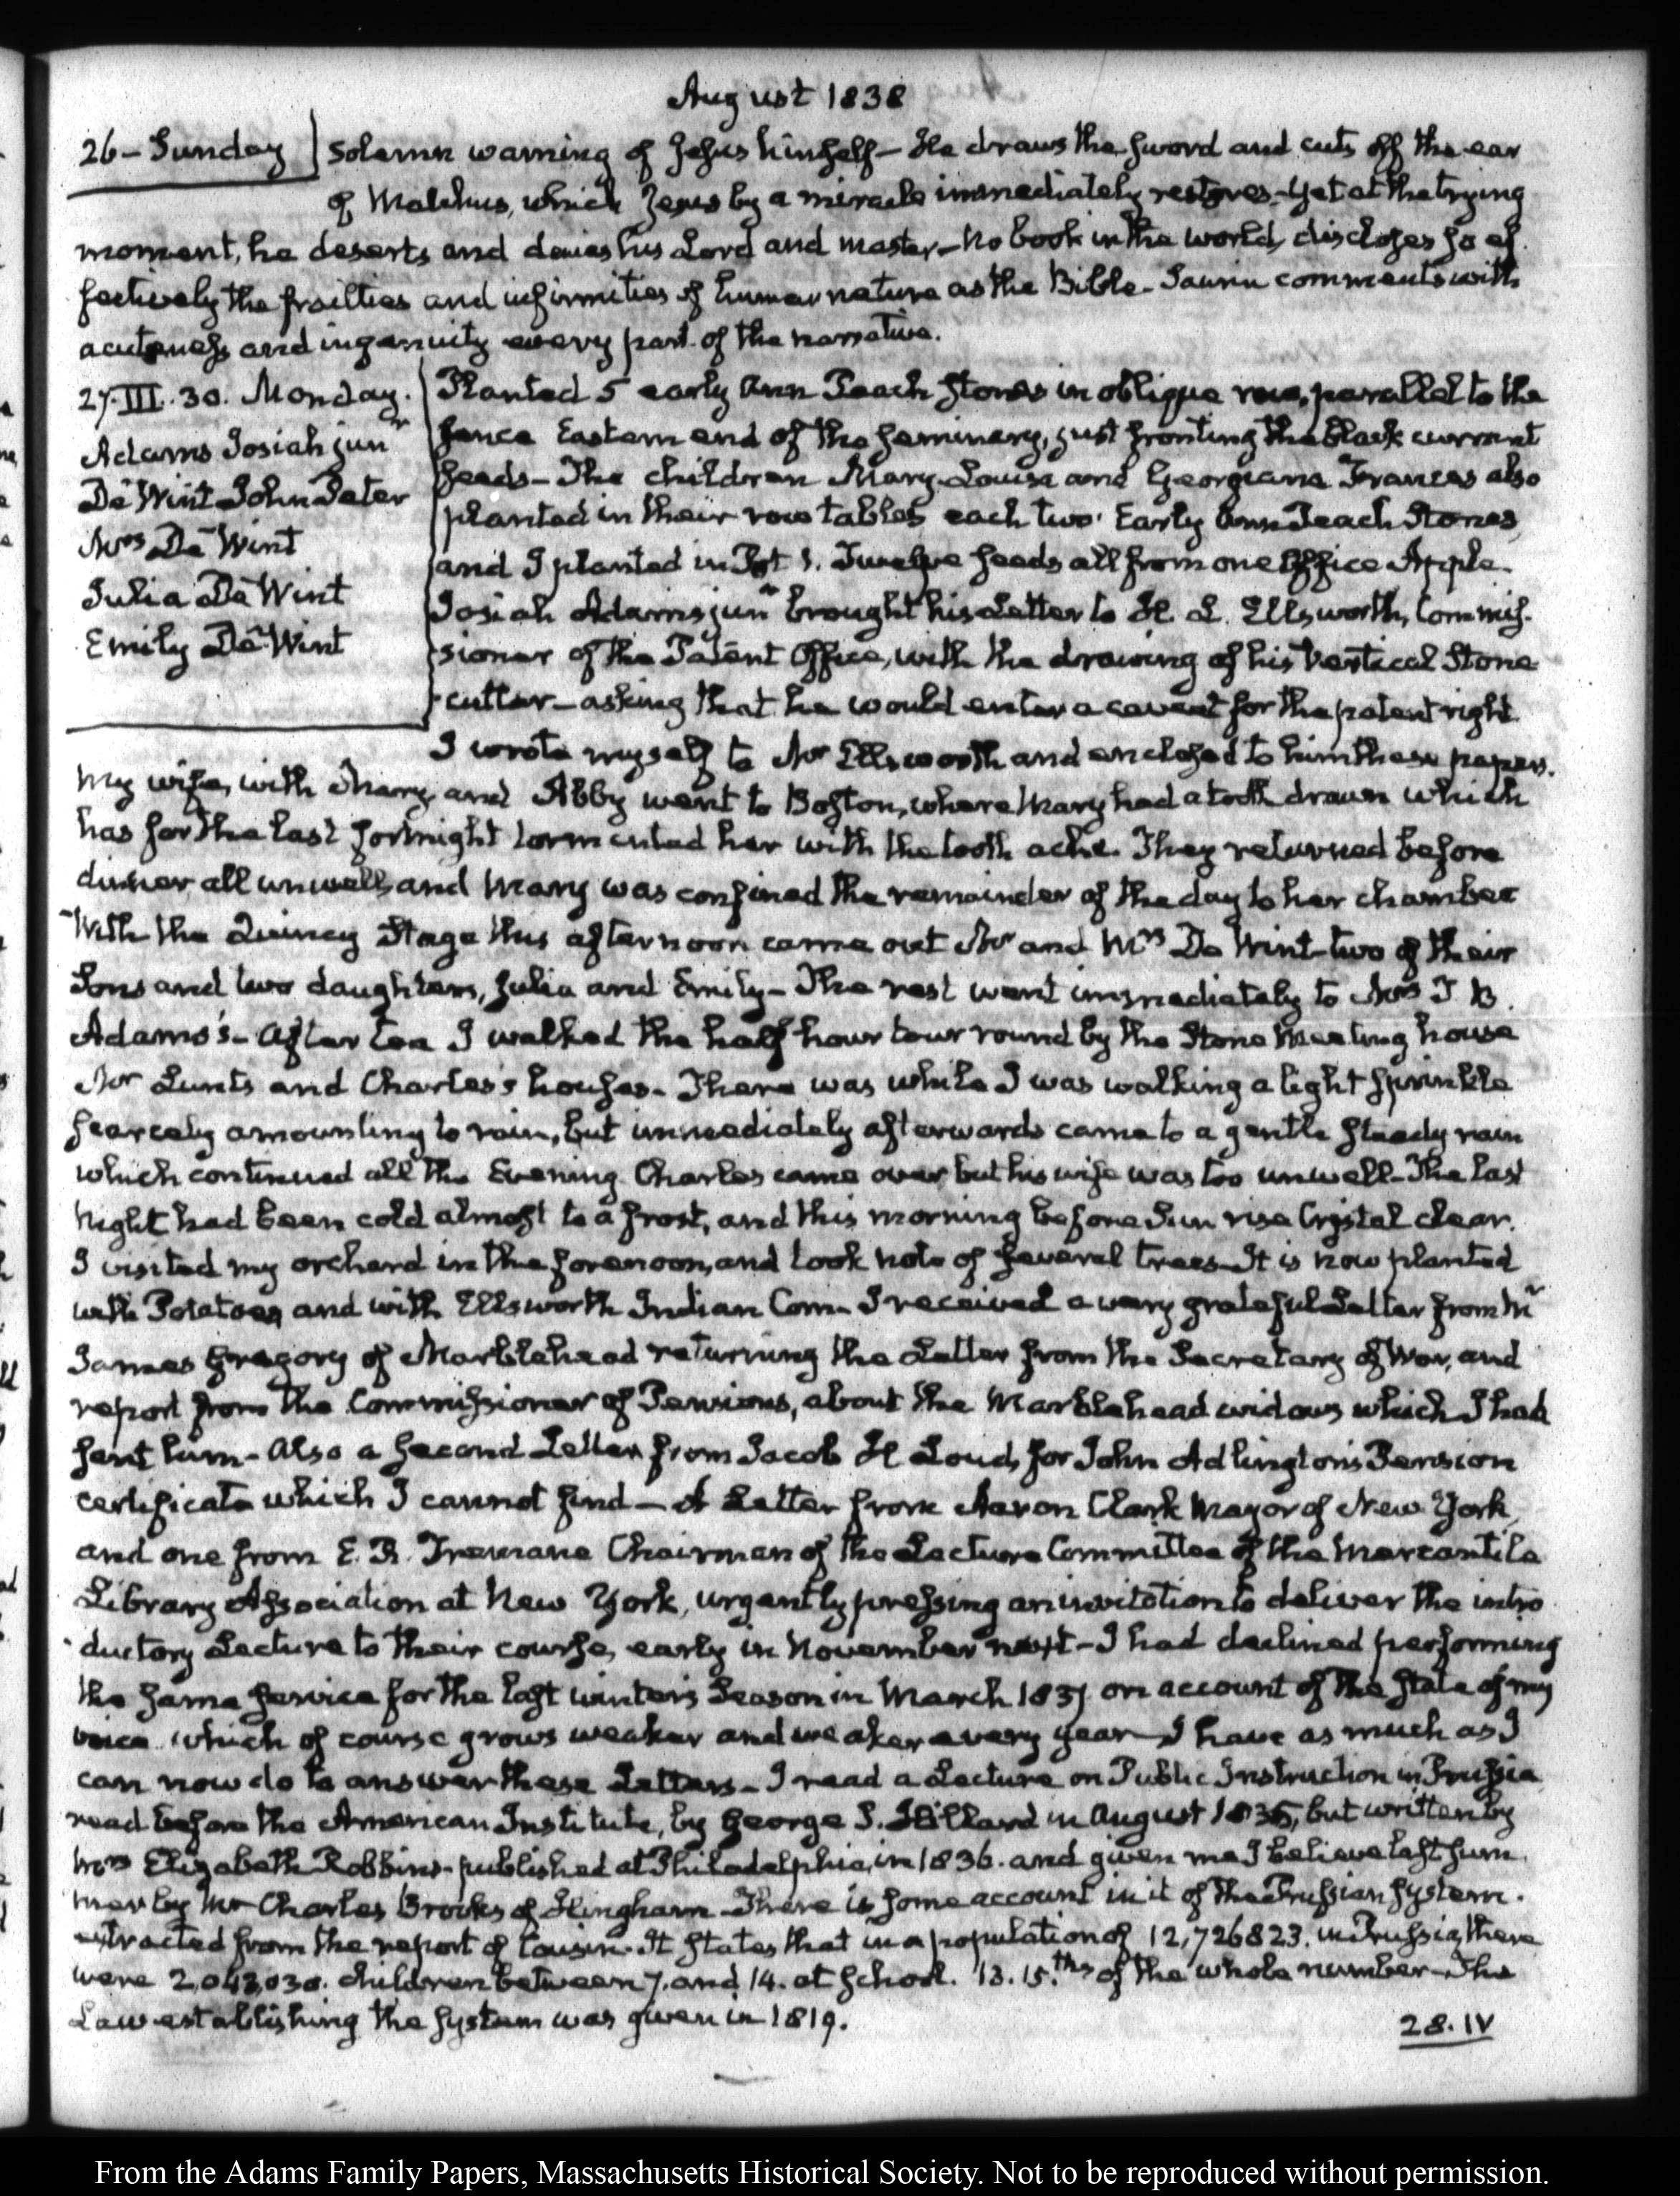 August 1838
26 – Sunday
solemn warning of Jesus himself – He draws the sword and cuts off the ear
of Malchus, which Jesus by a miracle immediately restores – Yet at the trying
moment, he deserts and denies his Lord and master – No book in the world, discloses so ef-
fectively the frailties and infirmities of human nature as the Bible – Saurin comments with
acuteness and ingenuity every part of the narrative.
27. III. 30. Monday.
Adams Josiah junr
De Wint John Peter
Mrs De Wint
Julia De Wint
Emily De Wint
Planted 5 early Ann Peach stones in oblique row, parallel to the
fence Eastern end of the seminary, just fronting the black currant
seeds – The children Mary-Louisa and Georgiana Frances also
planted in their row tables each two Early Ann Peach Stones,
and I planted in Pot 1. Twelve seeds all from one Office Apple.
Josiah Adams junr brought his Letter to H. L. Ellsworth, Commis-
sioner of the Patent Office, with the drawing of his vertical Stone
cutter – asking that he would enter a caveat for the patent right
I wrote myself to Mr Ellsworth and enclosed to him these papers.
My wife, with Mary and Abby went to Boston, where Mary had a tooth drawn which
has for the last fortnight tormented her with the tooth ache. They returned before
dinner, all unwell, and Mary was confined the remainder of the day to her chamber
With the Quincy Stage this afternoon came out Mr and Mrs De Wint – two of their
Sons and two daughters, Julia and Emily – The rest went immediately to Mrs T. B.
Adams's – After tea I walked the half hour tour round by the Stone Meeting house
Mr Lunt's and Charles's houses – There was while I was walking a light sprinkle
scarcely amounting to rain, but immediately afterwards came to a gentle steady rain
which continued all the Evening. Charles came over but his wife was too unwell – The last
Night had been cold almost to a frost, and this morning before Sun rise Crystal clear.
I visited my orchard in the forenoon, and took note of several trees – It is now planted
with Potatoes and with Ellsworth Indian Corn – I received a very grateful Letter from Mr
James Gregory of Marblehead returning the Letter from the Secretary of War, and
report from the Commissioner of Pensions, about the Marblehead widows which I had
sent him – Also a second Letter from Jacob H Loud, for John Adlington's Pension
certificate which I cannot find – A Letter from Aaron Clark Mayor of New York,
and one from E. R. Tremane Chairman of the Lecture Committee of the Mercantile
Library Association at New York, urgently pressing an invitation to deliver the intro-
ductory Lecture to their course, early in November next – I had declined performing
the same service for the last winter's Season in March 1837 on account of the state of my
voice which of course grows weaker and weaker every year – I have as much as I
can now do to answer these Letters – I read a Lecture on Public Instruction in Prussia
read before the American Institute, by George S. Hillard in August 1835, but written by
Mrs Elizabeth Robbins – published at Philadelphia, in 1836. and given me I believe last sum-
mer by Mr Charles Brooks of Hingham – There is some account in it of the Prussian system.
extracted from the report of Cousin. It states that in a population of 12,726823. in Prussia, there
were 2,043,030. children between 7. and 14. at school. 13. 15.ths of the whole number – The
Law establishing the system was given in 1819.
28. IV
From the Adams Family Papers, Massachusetts Historical Society. Not to be reproduced without permission.